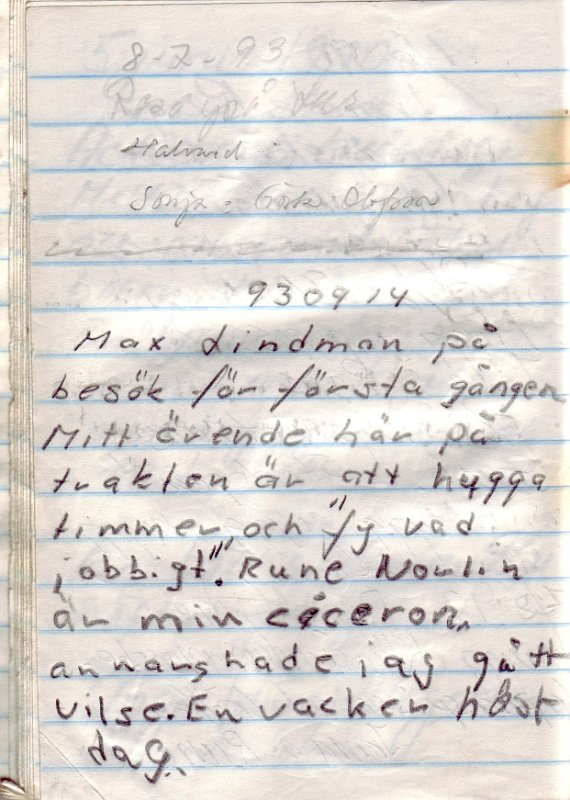 8-7-93
på
Halvard
Sonja
930914
Max Lindman på
besök för första gången
Mitt ärende här på
trakten är att hugga
timmer, och "fy vad
jobbigt". Rune Norlin
är min ciceron,
annars hade jag gått
vilse. En vacker höst
dag.